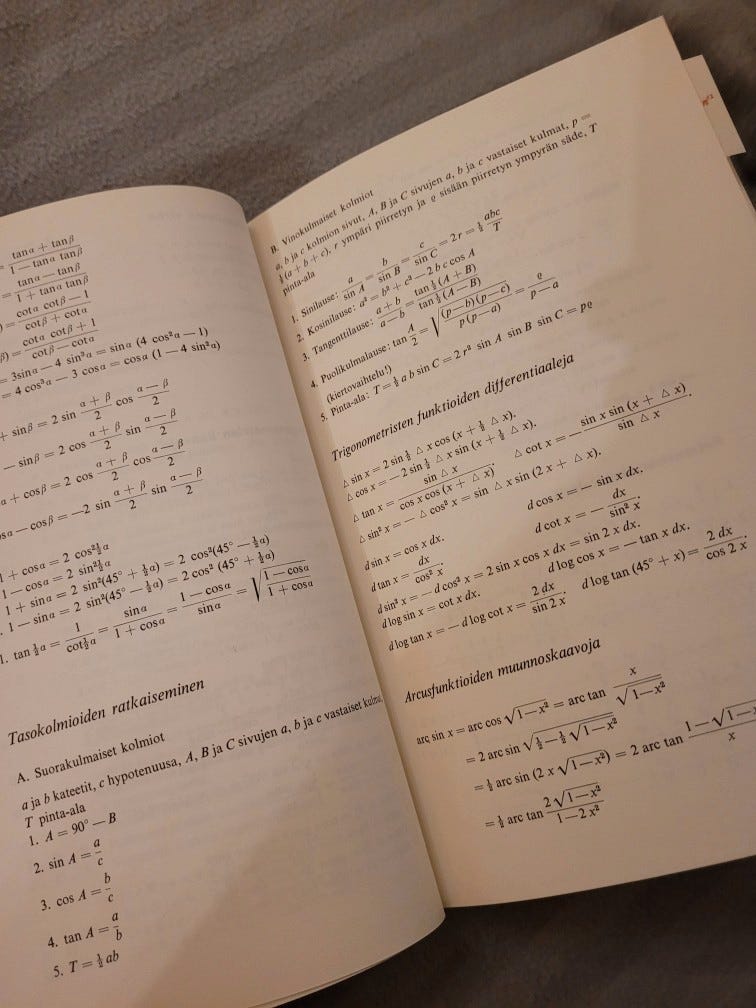 = (tanα + tanβ)/(1 − tanα tanβ)
= (tanα − tanβ)/(1 + tanα tanβ)
) = (cotα cotβ − 1)/(cotβ + cotα)
β) = (cotα cotβ + 1)/(cotβ − cotα)
= 3sinα − 4 sin³α = sinα (4 cos²α − 1)
= 4 cos³α − 3 cosα = cosα (1 − 4 sin²α)
+ sinβ = 2 sin (α + β)/2 cos (α − β)/2
− sinβ = 2 cos (α + β)/2 sin (α − β)/2
α + cosβ = 2 cos (α + β)/2 cos (α − β)/2
sα − cosβ = −2 sin (α + β)/2 sin (α − β)/2
1 + cosα = 2 cos²½α
1 − cosα = 2 sin²½α
1 + sinα = 2 sin²(45° + ½α) = 2 cos²(45° − ½α)
. 1 − sinα = 2 sin²(45° − ½α) = 2 cos² (45° + ½α)
1. tan ½α = 1/(cot½α) = sinα/(1 + cosα) = (1 − cosα)/sinα = √((1 − cosα)/(1 + cosα))
Tasokolmioiden ratkaiseminen
A. Suorakulmaiset kolmiot
a ja b kateetit, c hypotenuusa, A, B ja C sivujen a, b ja c vastaiset
T pinta-ala
1. A = 90° − B
2. sin A = a/c
3. cos A = b/c
4. tan A = a/b
5. T = ½ ab
B. Vinokulmaiset kolmiot
a, b ja c kolmion sivut, A, B ja C sivujen a, b ja c vastaiset kulmat, p =
½(a + b + c), r ympäri piirretyn ja ϱ sisään piirretyn ympyrän säde, T
pinta-ala
1. Sinilause: a/sin A = b/sin B = c/sin C = 2r = ½ abc/T
2. Kosinilause: a² = b² + c² − 2 b c cos A
3. Tangenttilause: (a + b)/(a − b) = tan ½(A + B)/tan ½(A − B)
4. Puolikulmalause: tan A/2 = √((p − b)(p − c)/(p (p − a))) = ϱ/(p − a)
(kiertovaihtelu!)
5. Pinta-ala: T = ½ a b sin C = 2 r² sin A sin B sin C = pϱ
Trigonometristen funktioiden differentiaaleja
△ sin x = 2 sin ½ △ x cos (x + ½ △ x).
△ cos x = − 2 sin ½ △ x sin (x + ½ △ x).
△ tan x = sin △ x/(cos x cos (x + △ x)). △ cot x = − sin x sin (x + △ x)/sin △ x.
△ sin² x = − △ cos² x = sin △ x sin (2 x + △ x).
d sin x = cos x dx. d cos x = − sin x dx.
d tan x = dx/cos² x. d cot x = − dx/sin² x.
d sin² x = − d cos² x = 2 sin x cos x dx = sin 2 x dx.
d log sin x = cot x dx. d log cos x = − tan x dx.
d log tan x = − d log cot x = 2 dx/sin 2 x. d log tan (45° + x) = 2 dx/cos 2 x.
Arcusfunktioiden muunnoskaavoja
arc sin x = arc cos √(1 − x²) = arc tan x/√(1 − x²)
= 2 arc sin √(½ − ½ √(1 − x²))
= ½ arc sin (2 x √(1 − x²)) = 2 arc tan (1 − √(1 − x²))/x
= ½ arc tan 2 x √(1 − x²)/(1 − 2 x²)